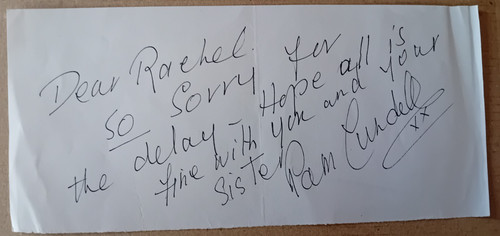 Dear Rachel.
So Sorry for
the delay - Hope all is
fine with you and your
sister
Pam Cundell
xx